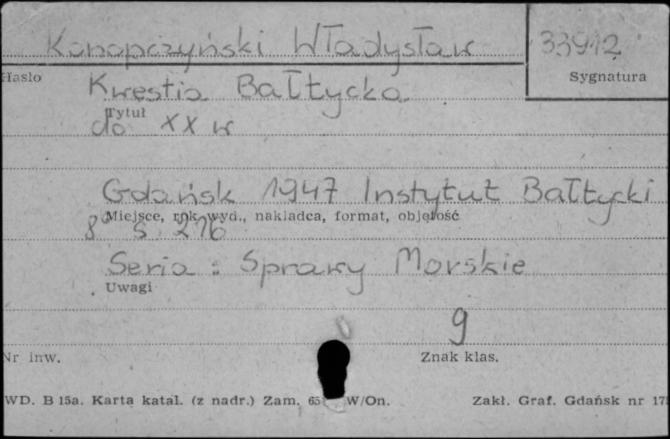 Konopczyński Władysław 33912
Hasło Sygnatura
Kwestia Bałtycka
Tytuł
do XX w
Gdańsk 1947 Instytut Bałtycki
Miejsce, rok wyd., nakładca, format, objętość
8° s 216
Seria : Sprawy Morskie
Uwagi
9
Nr inw. Znak klas.
WD. B 15a. Karta katal. (z nadr.) Zam. 65 W/On. Zakł. Graf. Gdańsk nr 17